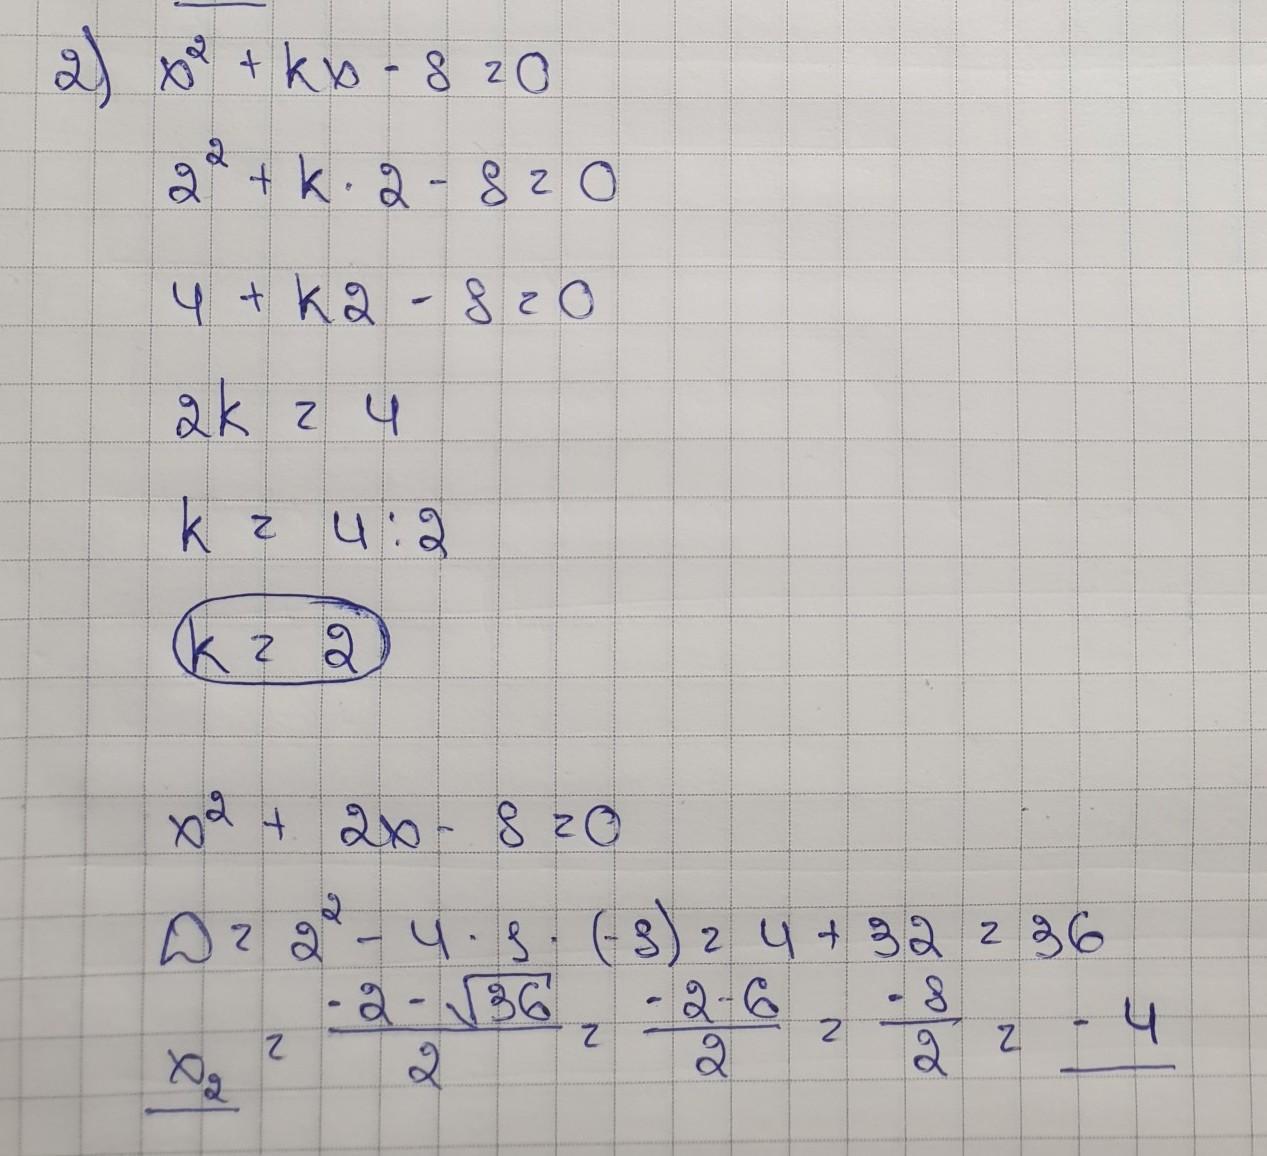 2) x² + kx - 8 = 0
2² + k · 2 - 8 = 0
4 + k2 - 8 = 0
2k = 4
k = 4 : 2
k = 2
x² + 2x - 8 = 0
D = 2² - 4 · 1 · (-8) = 4 + 32 = 36
x₂ = (-2 - √36)/2 = (-2-6)/2 = -8/2 = -4